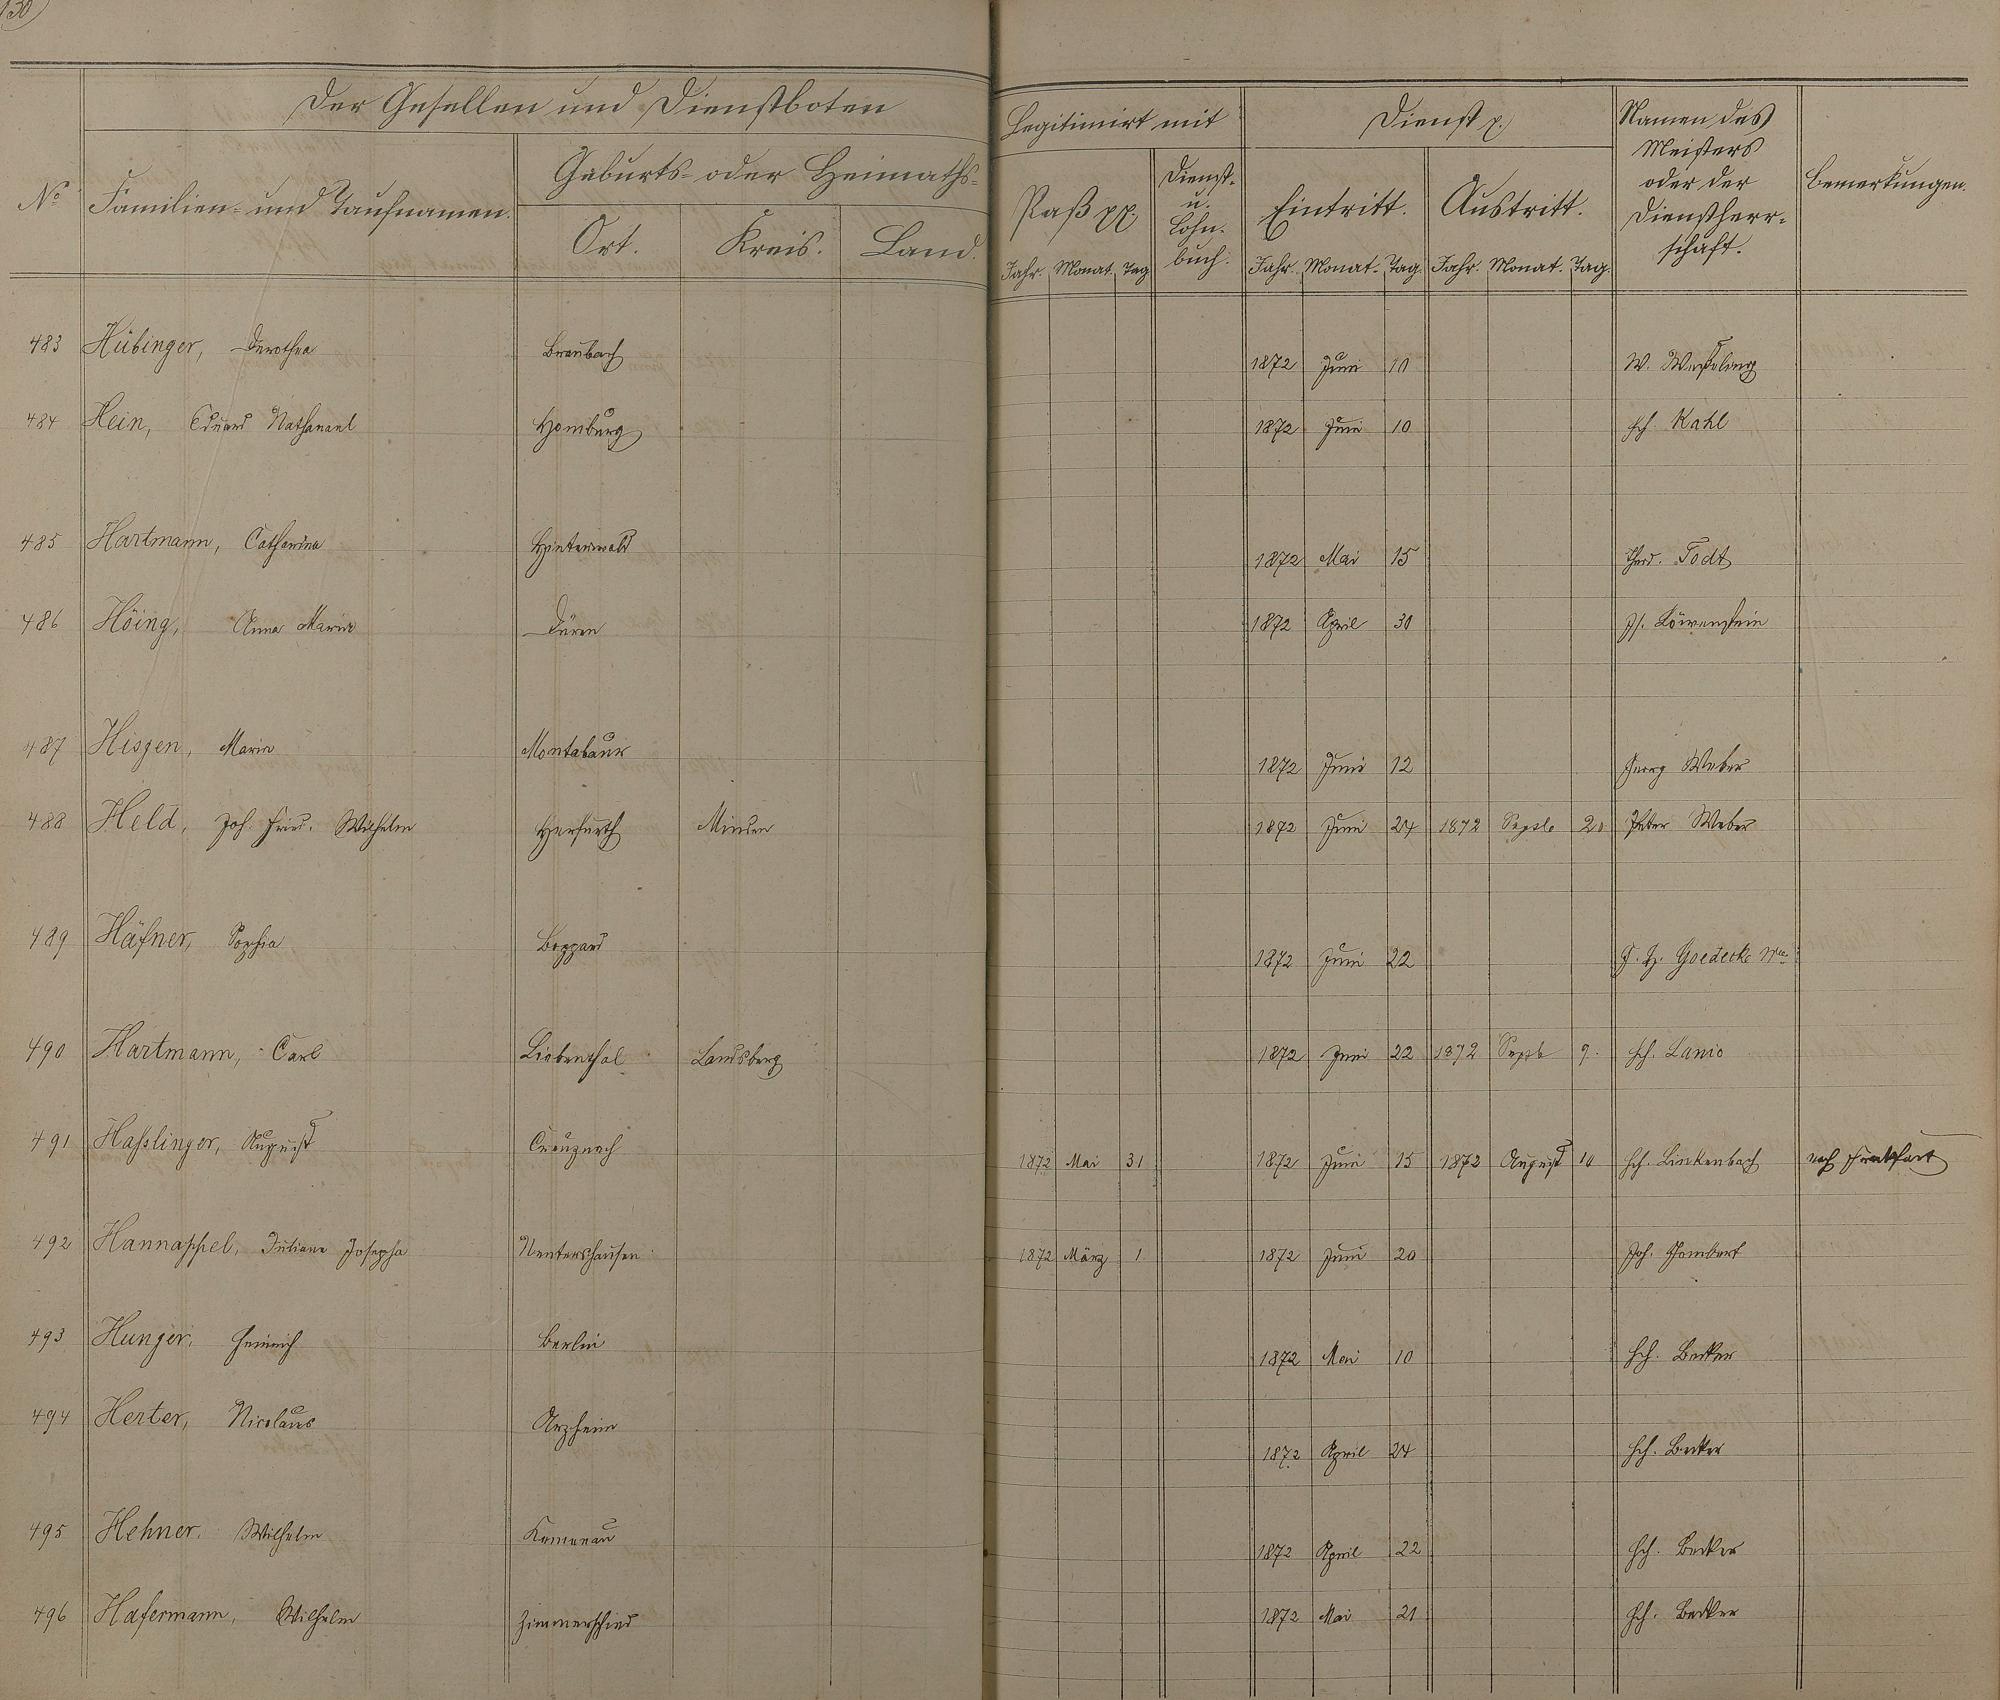 130
Der Gesellen und Dienstboten
Legitimirt mit
Dienst p.
Namen des Meisters oder der Dienstherrschaft.
Bemerkungen.
No
Familien- und Taufnamen.
Geburts- oder Heimaths-
Ort. Kreis. Land.
Paß pp.
Dienst- u. Lohnbuch.
Eintritt. Austritt.
Jahr. Monat. Tag Jahr. Monat. Tag. Jahr. Monat. Tag.
483 Hübinger, Dorothea Braubach 1872 Juni 10 W.
484 Hein, Eduard Nathanael Homburg 1872 Juni 10 Hch. Kahl
485 Hartmann, Catharina Hinterwald 1872 Mai 15 Todt
486 Höing, Anna Maria Düren 1872 April 30 Löwenstein
487 Hisgen, Maria Montabaur 1872 Juni 12 Georg Weber
488 Held, Joh. Fried. Wilhelm Herfurth Minden 1872 Juni 24 1872 Septb 20 Peter Weber
489 Häfner, Sophia Boppard 1872 Juni 22 Goedecke Wwe
490 Hartmann, Carl Liebenthal Landsberg 1872 Juni 22 1872 Septb 9. Hch. Lanio
491 Haßlinger, August Creuznach 1872 Mai 31 1872 Juni 15 1872 August 10 Hch. Linkenbach nach Frankfurt
492 Hannappel, Juliane Josepha Nentershausen 1872 März 1 1872 Juni 20 Joh. Gombert
493 Hunger, Heinrich Berlin 1872 Mai 10 Hch. Becker
494 Herter, Nicolaus Arzheim 1872 April 24 Hch. Becker
495 Hehner, Wilhelm Kemenau 1872 April 22 Hch. Becker
496 Hafermann, Wilhelm Zimmerschied 1872 Mai 21 Hch. Becker